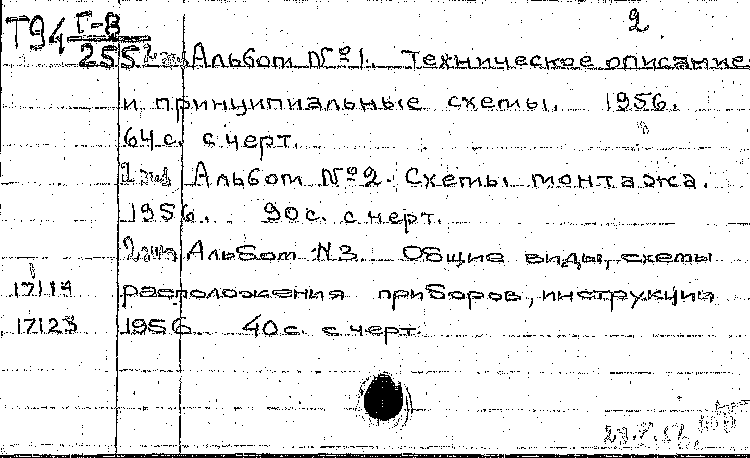 Т94 Г-В 2.
255 2 экз Альбом №1. Техническое описание
и принципиальные схемы. 1956.
64 с. с черт.
2 экз Альбом №2. Схемы монтажа.
1956. 90 с. с черт.
2 экз Альбом N3. Общие виды, схемы
17114 расположения приборов, инструкции
17123 1956. 40 с. с черт.